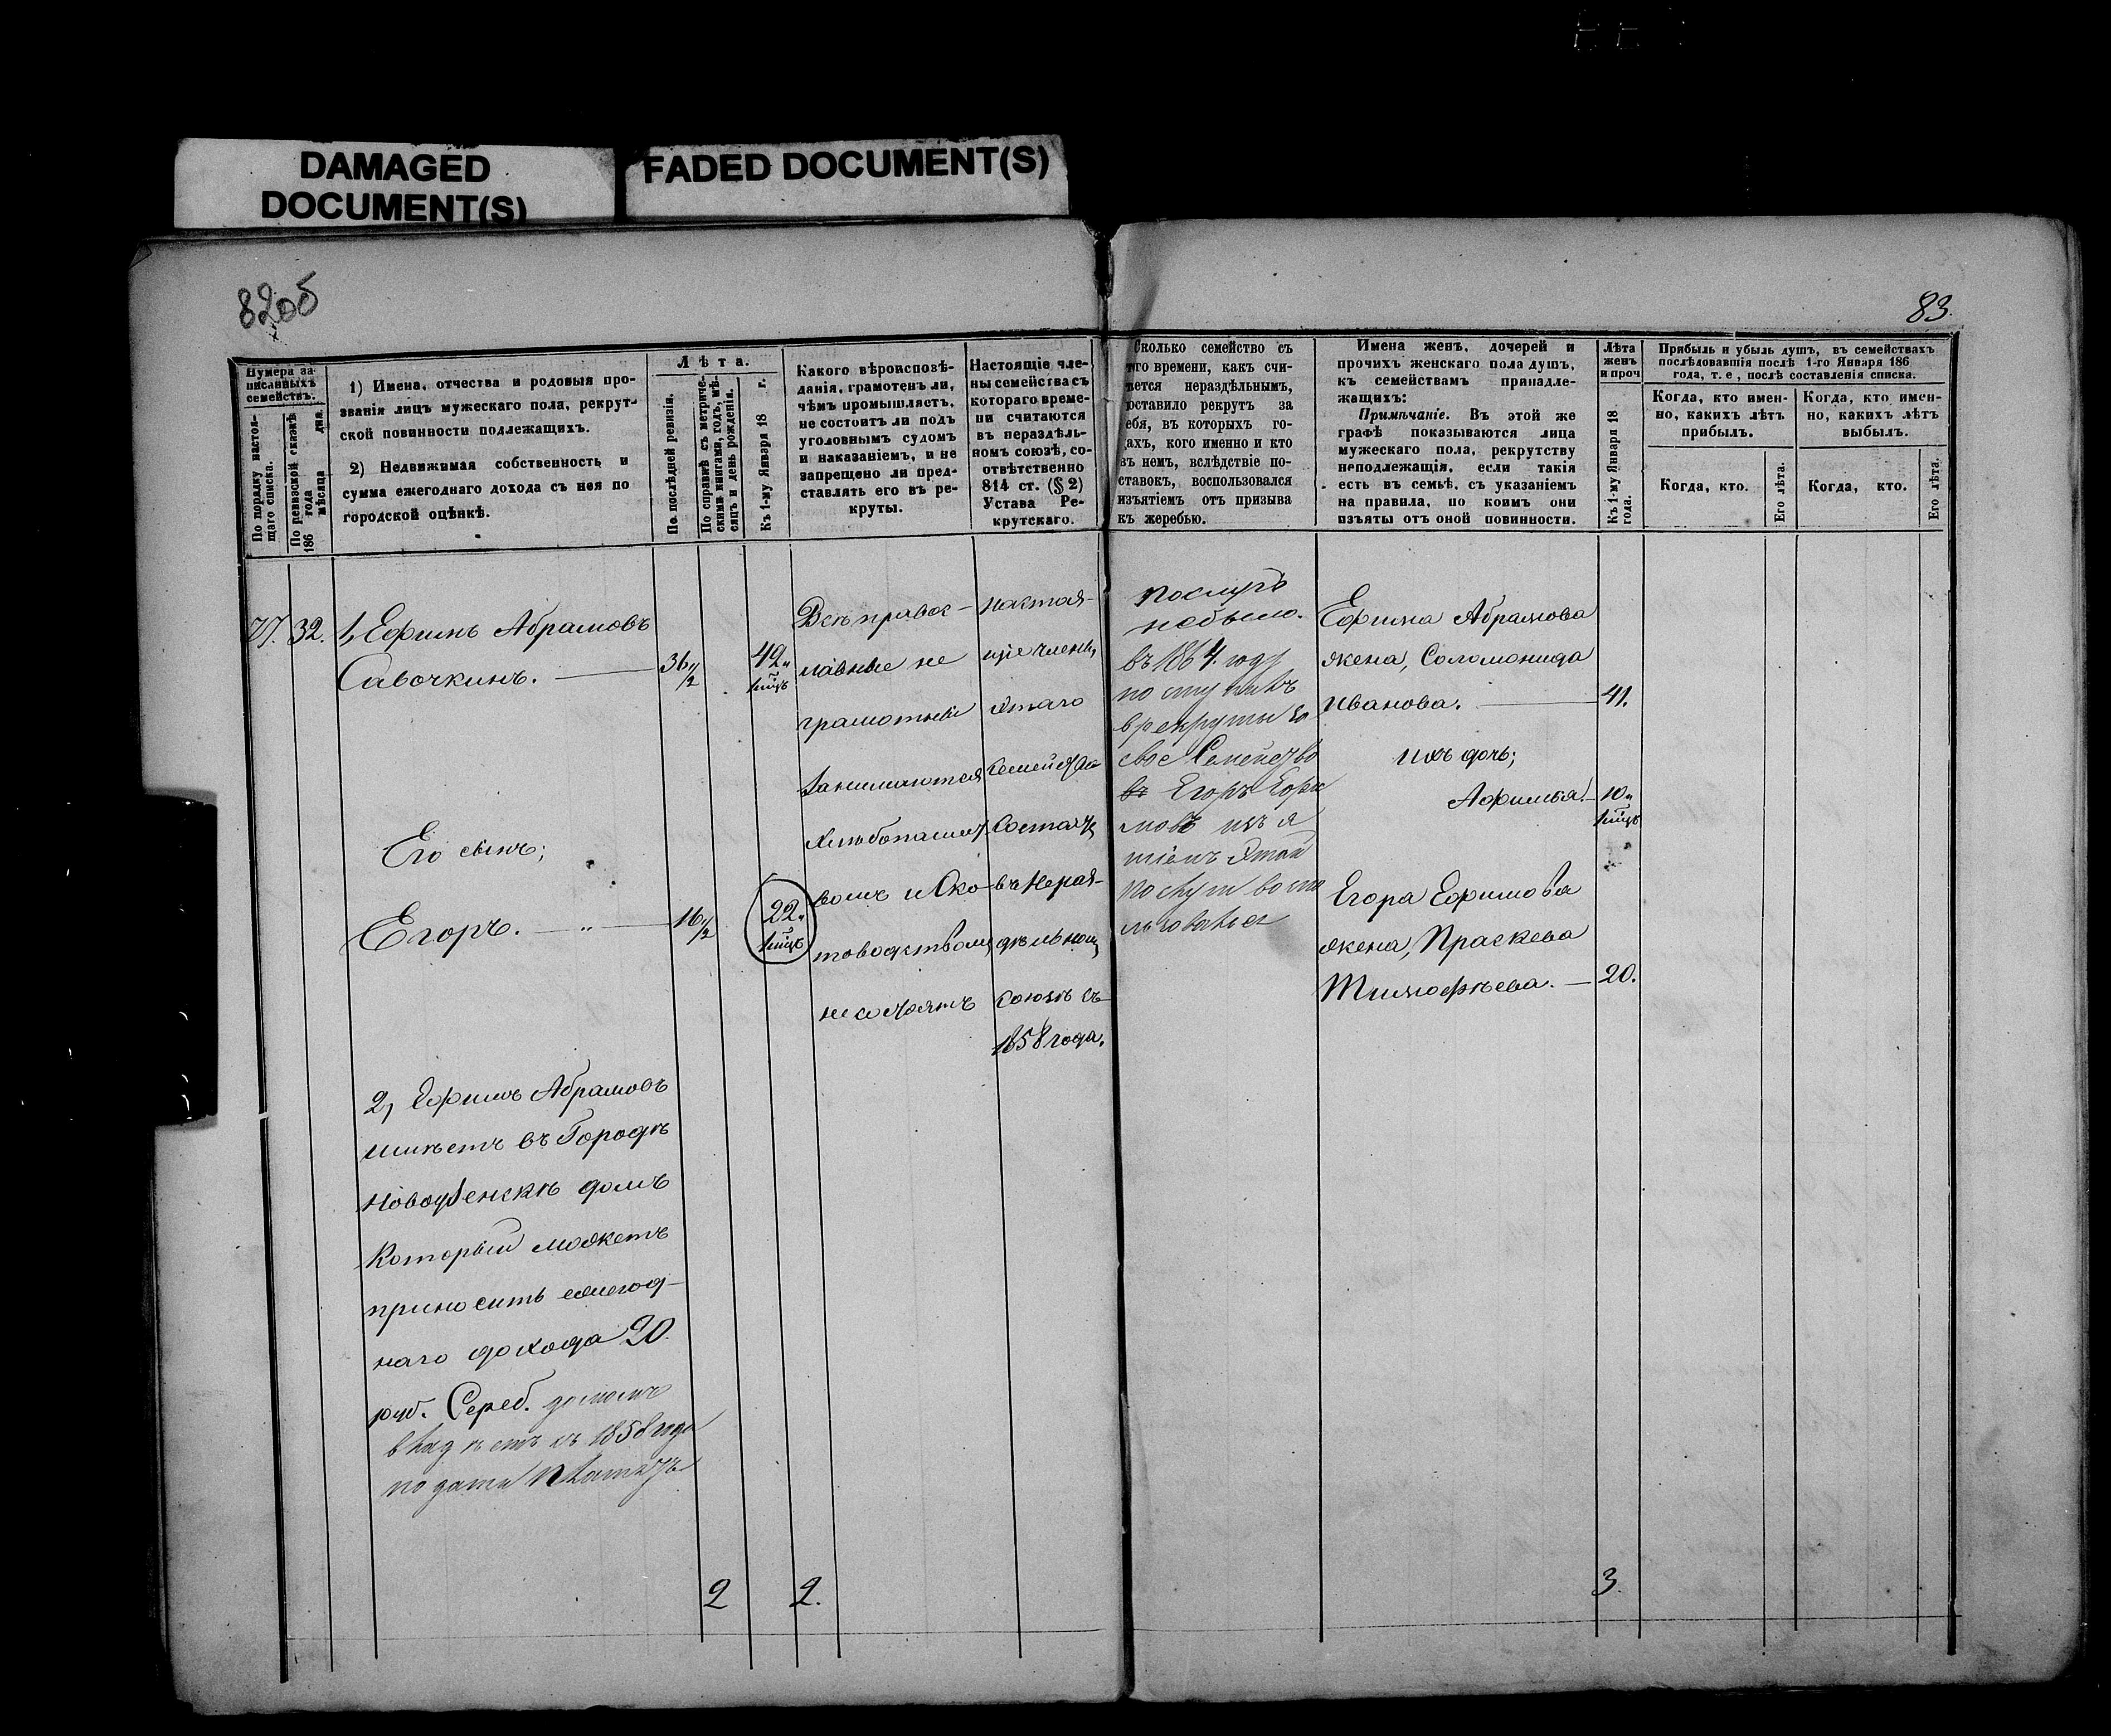 DAMAGED
DOCUMENT(S)
FADED DOCUMENT(S)
82об
83.
Нумера за-
писанныхъ
семействъ.
По порядку настоя-
щаго списка.
По ревизской сказкѣ
186 года
мѣсяца дня.
1) Имена, отчества и родовыя про-
званія лицъ мужескаго пола, рекрут-
ской повинности подлежащихъ.
2) Недвижимая собственность и
сумма ежегоднаго дохода съ нея по
городской оцѣнкѣ.
Лѣта.
По послѣдней ревизіи.
По справкѣ съ метриче-
скими книгами, годъ, мѣ-
сяцъ и день рожденія.
Къ 1-му Января 18 г.
Какого вѣроисповѣ-
данія, грамотенъ ли,
чѣмъ промышляетъ,
не состоитъ ли подъ
уголовнымъ судомъ
и наказаніемъ, и не
запрещено ли пред-
ставлять его въ ре-
круты.
Настоящіе чле-
ны семейства съ
котораго време-
ни считаются
въ нераздѣль-
номъ союзѣ, со-
отвѣтственно
814 ст. (§ 2)
Устава Ре-
крутскаго.
Сколько семейство съ
того времени, какъ счи-
тается нераздѣльнымъ,
поставило рекрутъ за
себя, въ которыхъ го-
дахъ, кого именно и кто
въ немъ, вслѣдствіе по-
ставокъ, воспользовался
изъятіемъ отъ призыва
къ жеребью.
Имена женъ, дочерей и
прочихъ женскаго пола душъ,
къ семействамъ принадле-
жащихъ:
Примѣчаніе. Въ этой же
графѣ показываются лица
мужескаго пола, рекрутству
неподлежащія, если такія
есть въ семьѣ, съ указаніемъ
на правила, по коимъ они
изъяты отъ оной повинности.
Лѣта
женъ
и проч
Къ 1-му Января 18
года.
Прибыль и убыль душъ, въ семействахъ
послѣдовавшія послѣ 1-го Января 186
года, т. е, послѣ составленія списка.
Когда, кто имен-
но, какихъ лѣтъ
прибылъ.
Когда, кто имен-
но, какихъ лѣтъ
выбылъ.
Когда, кто.
Его лѣта.
Когда, кто.
Его лѣта.
27. 32. 1, Ефимъ Абрамовъ
Савочкинъ. — 36 1/2 42
Его сынъ;
Егоръ. — „ — 16 1/2 22
2, Ефимъ Абрамовъ
имѣетъ въ Городѣ
Новоузенскѣ домъ
Который можетъ
приносить ежегод-
наго дохода 20
руб. Сереб. домомъ
владѣетъ съ 1858 года
подати
2 2.
Всѣ правос-
лавные не
грамотные
Занимаются
Хлѣбопашест
вомъ и Ско-
товодствомъ
не состоятъ
Настоя-
щіе члены
этаго
Семейства
Состоятъ
въ Нераз-
дѣльномъ
Союзѣ съ
1858 года.
небыло.
въ 1864. году
поступилъ
в рекруты за
свое Семейство
Егоръ Ефи
мовъ изъя
тіемъ этой
Ефима Абрамова
жена, Соломонида
Иванова. — 41.
ихъ дочь;
Афимья. — 10
Егора Ефимова
жена, Праскева
Тимофѣева. — 20.
3.